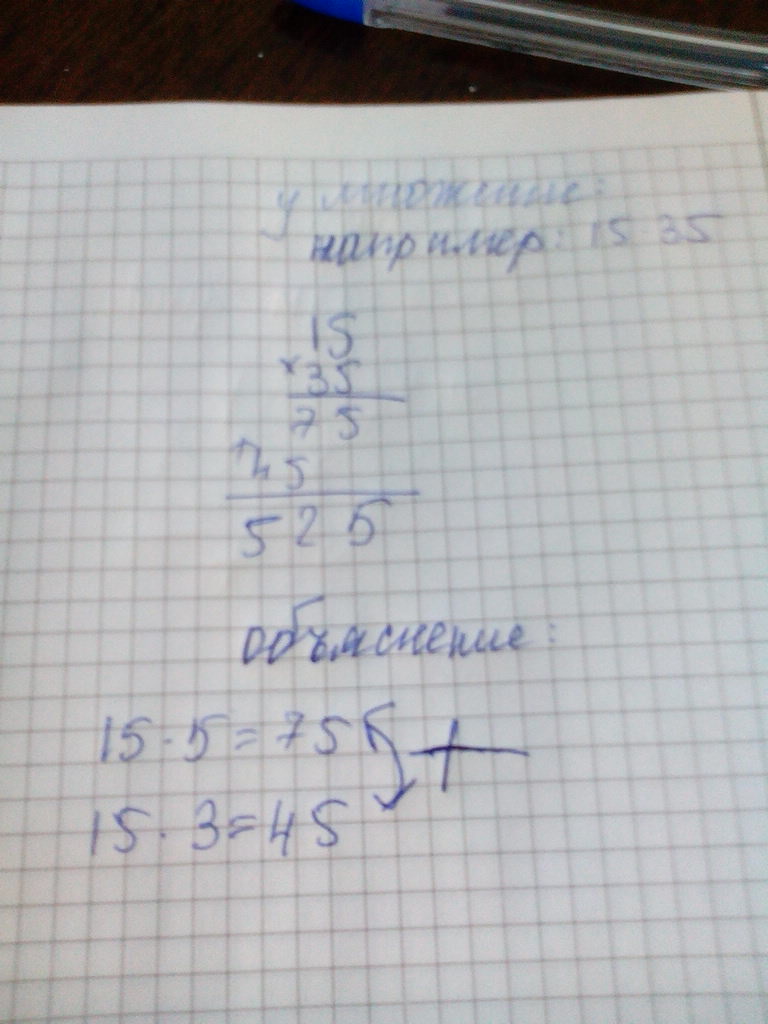 умножение:
например: 15 35
15
×35
75
+45
525
объяснение:
15·5=75 +
15·3=45